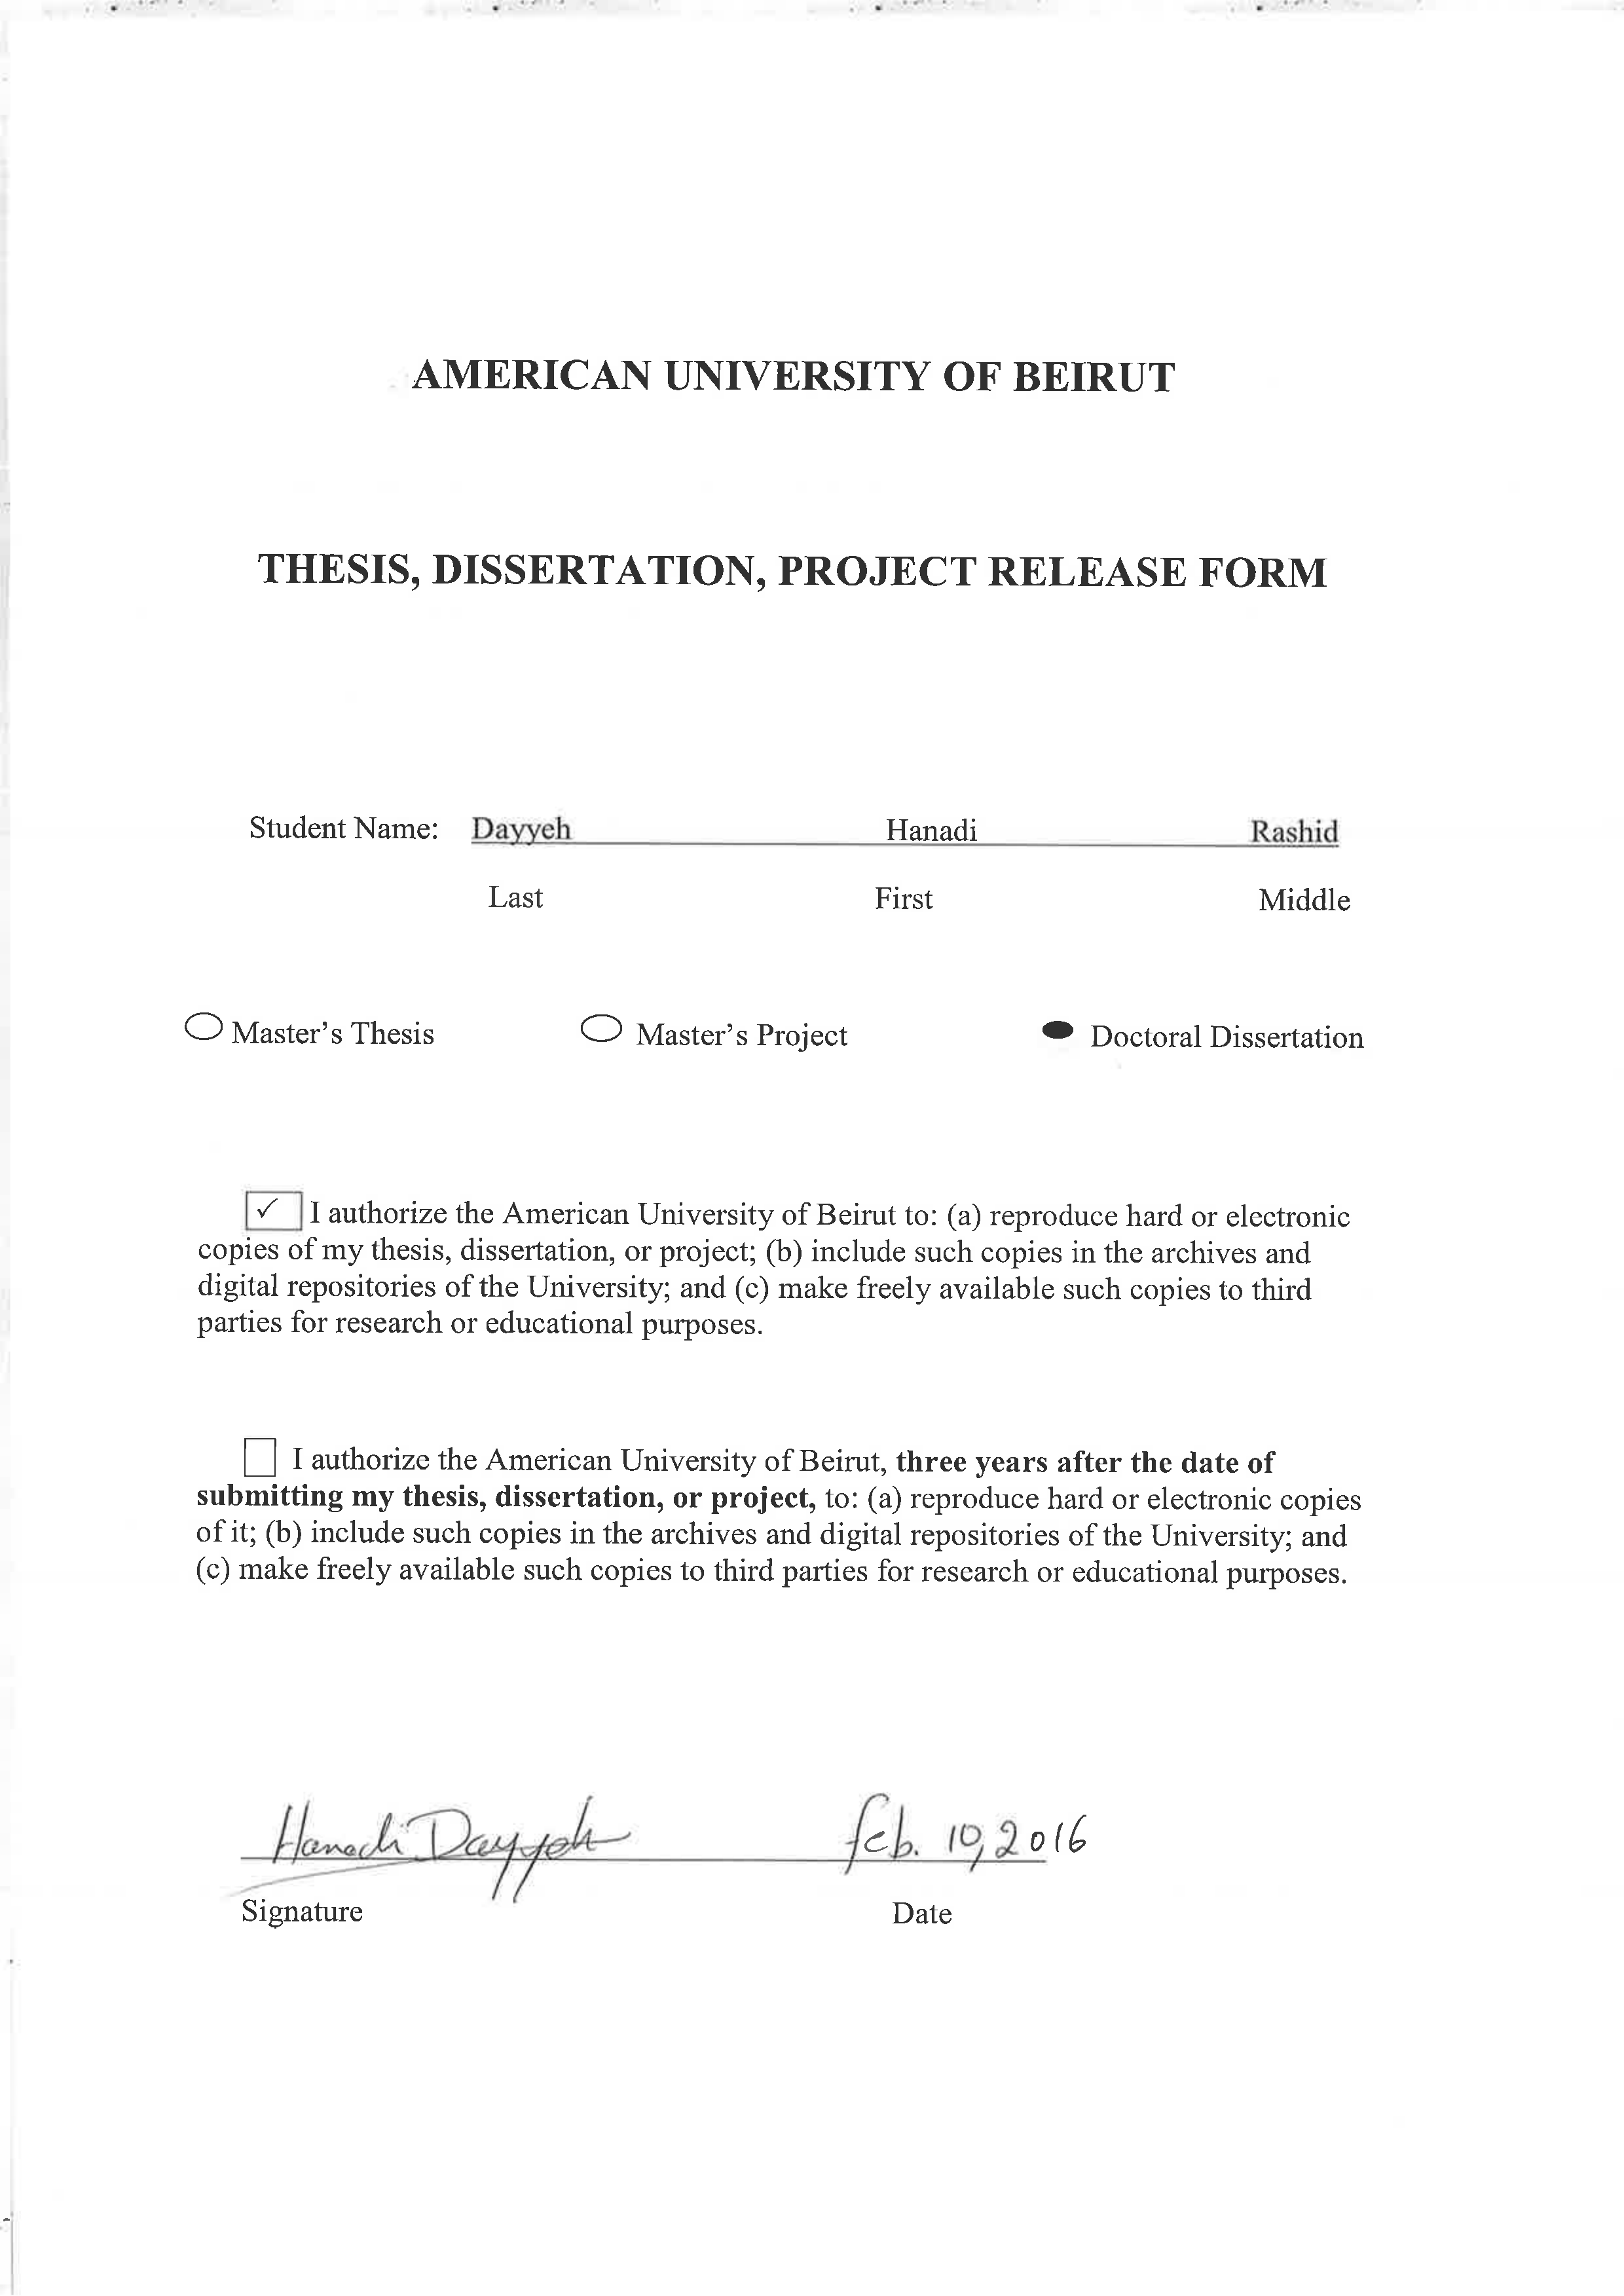 AMERICAN UNIVERSITY OF BEIRUT
THESIS, DISSERTATION, PROJECT RELEASE FORM
Student Name: Dayyeh Hanadi Rashid
Last First Middle
Master's Thesis Master's Project Doctoral Dissertation
✓ I authorize the American University of Beirut to: (a) reproduce hard or electronic
copies of my thesis, dissertation, or project; (b) include such copies in the archives and
digital repositories of the University; and (c) make freely available such copies to third
parties for research or educational purposes.
I authorize the American University of Beirut, three years after the date of
submitting my thesis, dissertation, or project, to: (a) reproduce hard or electronic copies
of it; (b) include such copies in the archives and digital repositories of the University; and
(c) make freely available such copies to third parties for research or educational purposes.
Hanadi Dayyeh feb. 10, 2016
Signature Date